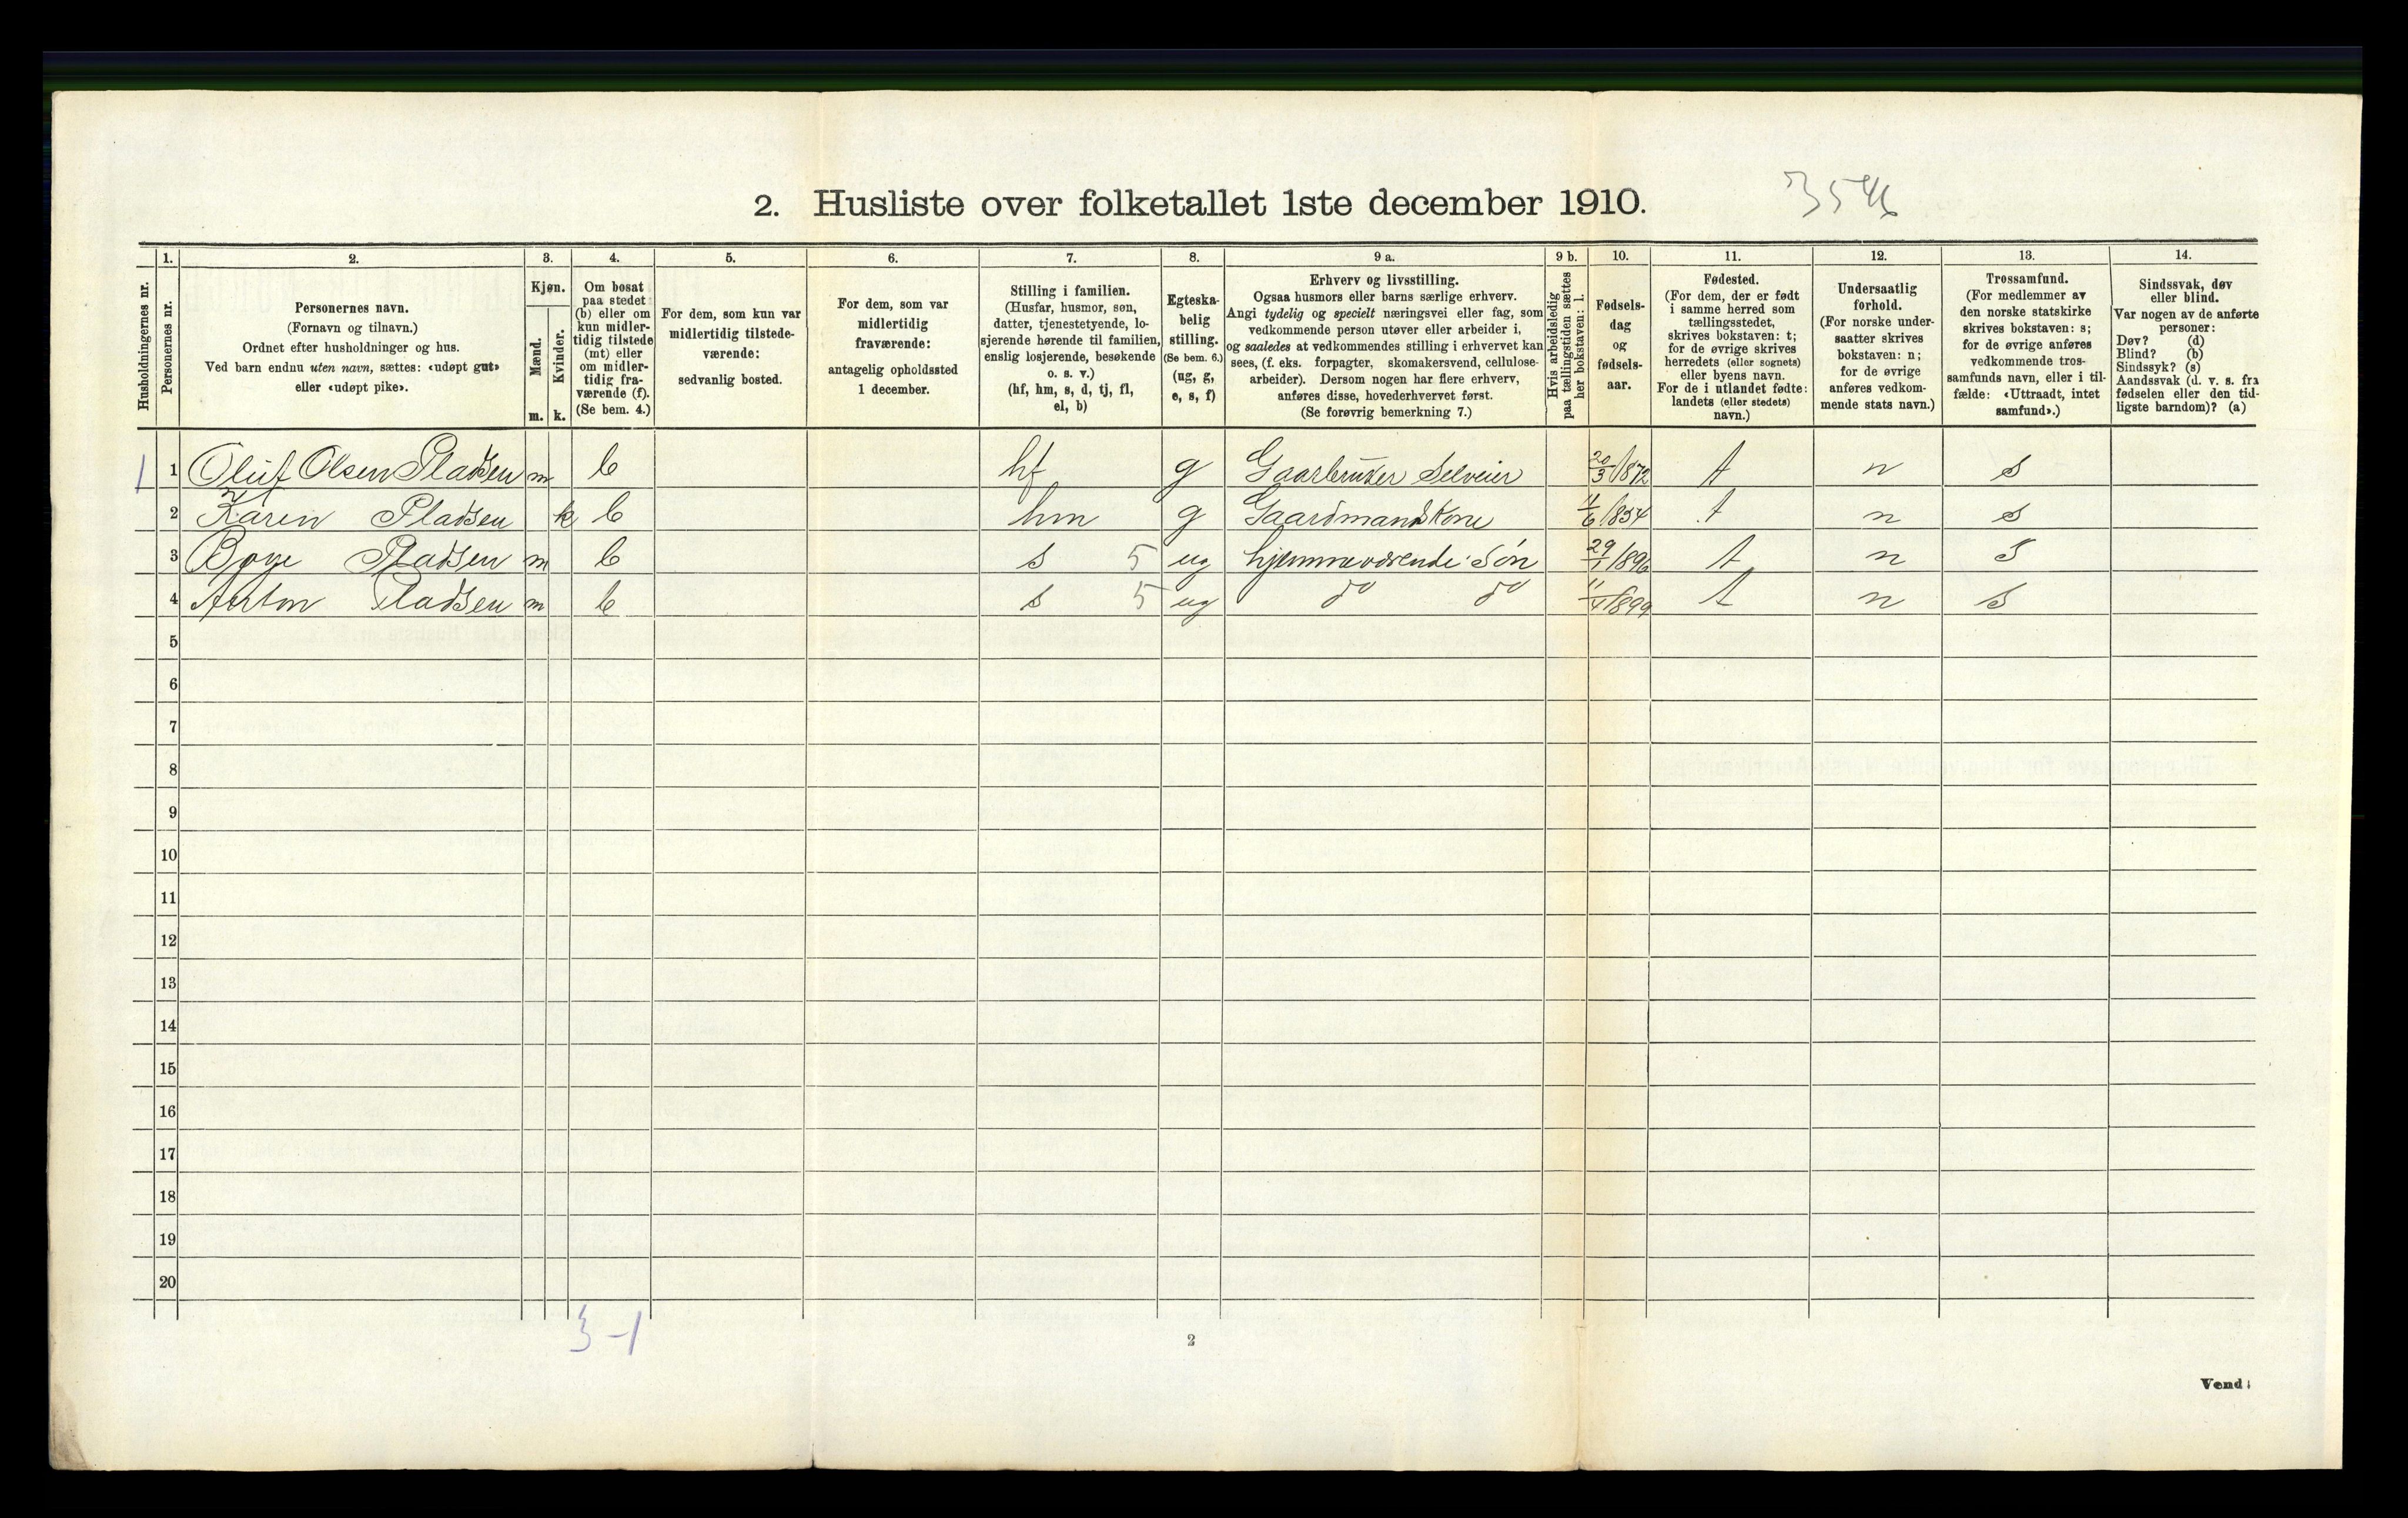 2. Husliste over folketallet 1ste december 1910.
3546
Husholdningernes nr.
1.
Personernes nr.
2.
Personernes navn.
(Fornavn og tilnavn.)
Ordnet efter husholdninger og hus.
Ved barn endnu uten navn, sættes: «udøpt gut»
eller «udøpt pike».
3.
Kjøn.
Mænd.
m.
Kvinder.
k.
4.
Om bosat
paa stedet
(b) eller om
kun midler-
tidig tilstede
(mt) eller
om midler-
tidig fra-
værende (f).
(Se bem. 4.)
5.
For dem, som kun var
midlertidig tilstede-
værende:
sedvanlig bosted.
6.
For dem, som var
midlertidig
fraværende:
antagelig opholdssted
1 december.
7.
Stilling i familien.
(Husfar, husmor, søn,
datter, tjenestetyende, lo-
sjerende hørende til familien,
enslig losjerende, besøkende
o. s. v.)
(hf, hm, s, d, tj, fl,
el, b)
8.
Egteska-
belig
stilling.
(Se bem. 6.)
(ug, g,
e, s, f)
9 a.
Erhverv og livsstilling.
Ogsaa husmors eller barns særlige erhverv.
Angi tydelig og specielt næringsvei eller fag, som
vedkommende person utøver eller arbeider i,
og saaledes at vedkommendes stilling i erhvervet kan
sees, (f. eks. forpagter, skomakersvend, cellulose-
arbeider). Dersom nogen har flere erhverv,
anføres disse, hovederhvervet først.
(Se forøvrig bemerkning 7.)
9 b.
Hvis arbeidsledig
paa tællingstiden sættes
her bokstaven: l.
10.
Fødsels-
dag
og
fødsels-
aar.
11.
Fødested.
(For dem, der er født
i samme herred som
tællingsstedet,
skrives bokstaven: t;
for de øvrige skrives
herredets (eller sognets)
eller byens navn.
For de i utlandet fødte:
landets (eller stedets)
navn.)
12.
Undersaatlig
forhold.
(For norske under-
saatter skrives
bokstaven: n;
for de øvrige
anføres vedkom-
mende stats navn.)
13.
Trossamfund.
(For medlemmer av
den norske statskirke
skrives bokstaven: s;
for de øvrige anføres
vedkommende tros-
samfunds navn, eller i til-
fælde: «Uttraadt, intet
samfund».)
14.
Sindssvak, døv
eller blind.
Var nogen av de anførte
personer:
Døv? (d)
Blind? (b)
Sindssyk? (s)
Aandssvak (d. v. s. fra
fødselen eller den tid-
ligste barndom)? (a)
1 1 Oluf Olsen Pladsen m b hf g Gaarbruker Selveier 20/3 1872 t n s
2 Karen Pladsen k b hm g Gaardmandskone 11/6 1854 t n s
3 Pladsen m b s 5 ug hjemmeværende Søn 29/1 1896 t n s
4 Anton Pladsen m b s 5 ug do do 11/4 1899 t n s
5
6
7
8
9
10
11
12
13
14
15
16
17
18
19
20
3-1
2
Vend!